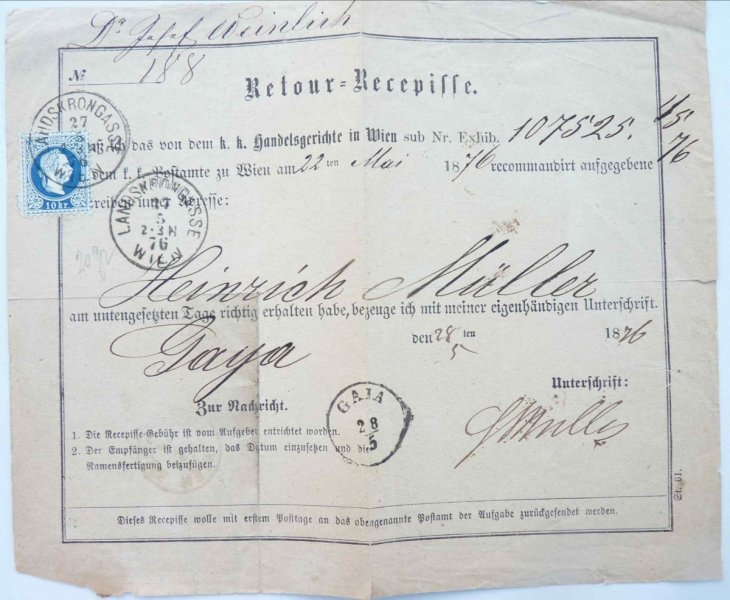 Dr. Josef Weinlich
№ 188
Retour-Recepisse.
ich das von dem k. k. Handelsgerichte in Wien sub Nr. Exhib. 107525. 45/76
dem k. k. Postamte zu Wien am 22 ten Mai 1876 recommandirt aufgegebene
Schreiben unter Adresse:
LANDSKRONGASSE
27
WIEN
LANDSKRONGASSE
27
5
2-3N
76
WIEN
10 Kr.
Heinrich Müller
am untengesetzten Tage richtig erhalten habe, bezeuge ich mit meiner eigenhändigen Unterschrift.
Gaya den 28/5 ten 1876
Unterschrift:
Zur Nachricht.
GAIA
28
5
HMüller
1. Die Recepisse-Gebühr ist vom Aufgeber entrichtet worden.
2. Der Empfänger ist gehalten, das Datum einzusetzen und die
Namensfertigung beizufügen.
Dieses Recepisse wolle mit erstem Posttage an das obengenannte Postamt der Aufgabe zurückgesendet werden.